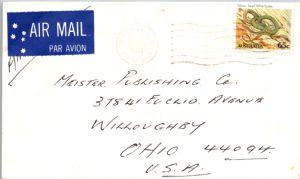 AIR MAIL
PAR AVION
AUSTRALIA
65c
MEISTER PUBLISHING CO.
37841 EUCLID AVENUE
WILLOUGHBY
OHIO 44094.
U.S.A.